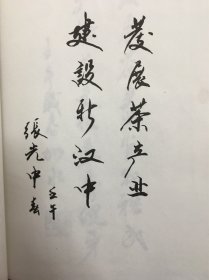 发展茶产业
建設新汉中
張光中書
壬午